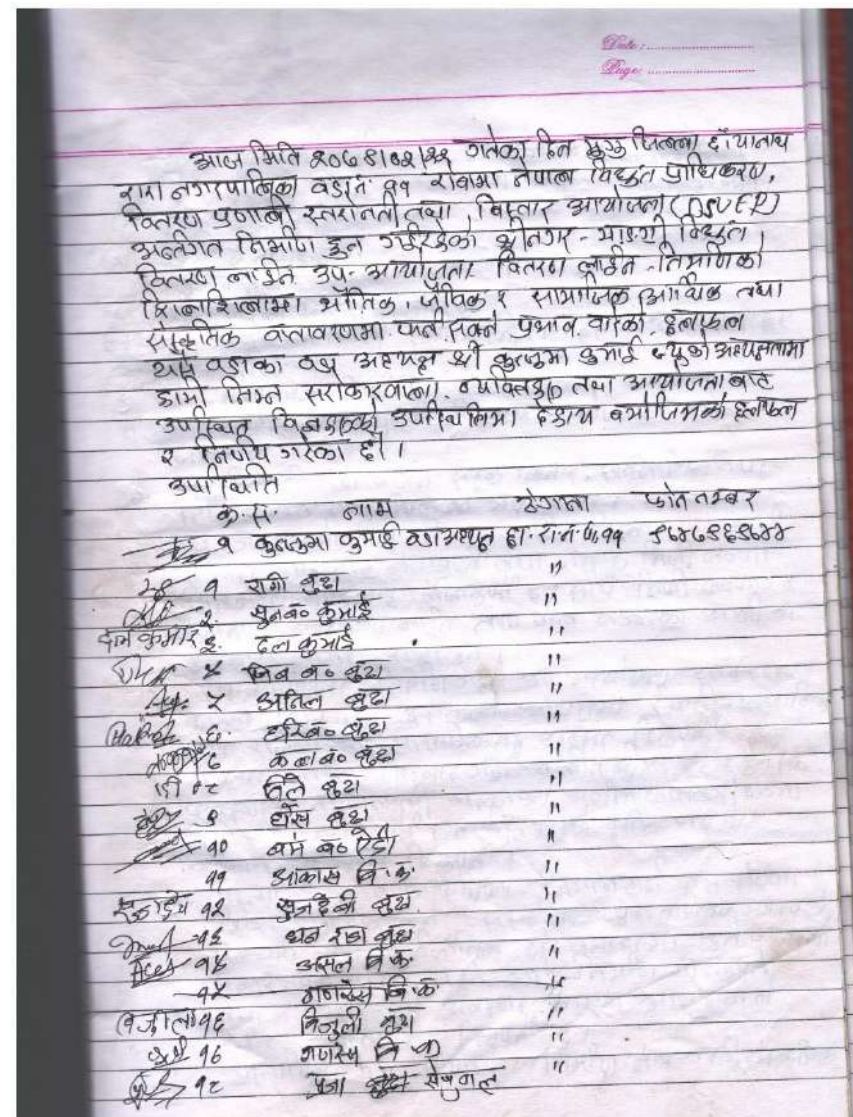 Date : ........................
Page : ........................
आज मिति २०७८।०२।२२ गतेका दिन मुगु जिल्ला छाँयानाथ
रारा नगरपालिका वडा नं. ११ रोवामा नेपाल विद्युत प्राधिकरण,
वितरण प्रणाली स्तरोन्नती तथा विस्तार आयोजना (DSUEP)
अन्तर्गत निर्माण हुन गईरहेको श्रीनगर - माङ्ग्री विद्युत
वितरण लाईन उप- आयोजना वितरण लाईन निर्माणको
शिलशिलामा भौतिक, जैविक र सामाजिक आर्थिक तथा
सांस्कृतिक वातावरणमा पार्न सक्ने प्रभाव बारेका छलफल
यस वडाका वडा अध्यक्ष श्री कुलजुमा कुमाई ज्युको अध्यक्षतामा
हामी निम्न सरोकारवाला व्यक्तिहरु तथा आयोजना बाट
उपस्थित विज्ञहरुको उपस्थितिमा देहाय बमोजिमको छलफल
र निर्णय गरेका छौं ।
उपस्थिति
क्र.सं. नाम ठेगाना फोन नम्बर
१ कुलजुमा कुमाई वडा अध्यक्ष छा. रा. न. पा. ११
१ रागी बुढा "
२. सुनब० कुमाई "
दल कुमार ३. दल कुमाई "
४ जिब ब० बुढा "
५ अनिल बुढा "
६. हरिब० बुढा "
७ कलाब० बुढा "
८ जिते बुढा "
९ धौस बुढा "
१० बम ब० ऐडी "
११ आकास वि.क. "
१२ सुनदेबी बुढा "
१३ धन राज बुढा "
१४ असल बि.क. "
१५ गणेस बि.क. "
१६ बिजुली बुढा "
१७ गणेस बि.क "
१८ पुजा बुढा सेजुवाल "